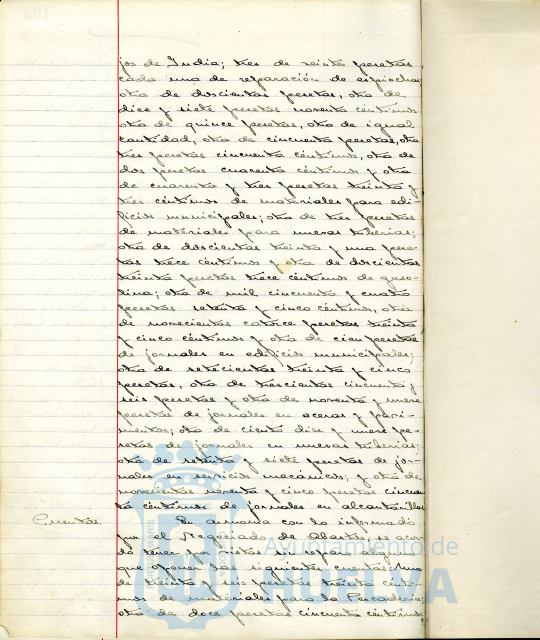 jos de India; tres de veinte pesetas
cada una de reparación de espiochas
otra de doscientas pesetas, otra de
diez y siete pesetas noventa céntimos
otra de quince pesetas, otra de igual
cantidad, otra de cincuenta pesetas, otra
tres pesetas cincuenta céntimos, otra de
dos pesetas cuarenta céntimos y otra
de cuarenta y tres pesetas treinta y
tres céntimos de materiales para edi-
ficios municipales; otra de tres pesetas
de materiales para nuevas tuberias;
otra de doscientas treinta y una pese-
tas trece céntimos y otra de doscientas
treinta pesetas trece céntimos de gaso-
lina; otra de mil cincuenta y cuatro
pesetas setenta y cinco céntimos, otra
de novecientas catorce pesetas treinta
y cinco céntimos y otra de cien pesetas
de jornales en edificios municipales;
otra de setecientas treinta y cinco
pesetas, otra de trescientas cincuenta y
seis pesetas y otra de noventa y nueve
pesetas de jornales en aceras y pavi-
mentos; otra de ciento diez y nueve pe-
setas de jornales en nuevas tuberias;
otra de setenta y siete pesetas de jor-
nales en servicios mecánicos; y otra de
novecientas noventa y cinco pesetas cincuen-
ta céntimos de jornales en alcantarillas
Cuentas. En armonia con lo informado
por el Negociado de Abastos, se acor-
dó tener por vistas sin reparo alguno
que oponer las siguientes cuentas: Una
de treinta y seis pesetas treinta cénti-
mos de materiales para la Pescadería;
otra de doce pesetas cincuenta céntimos
Ayuntamiento de
HUELVA